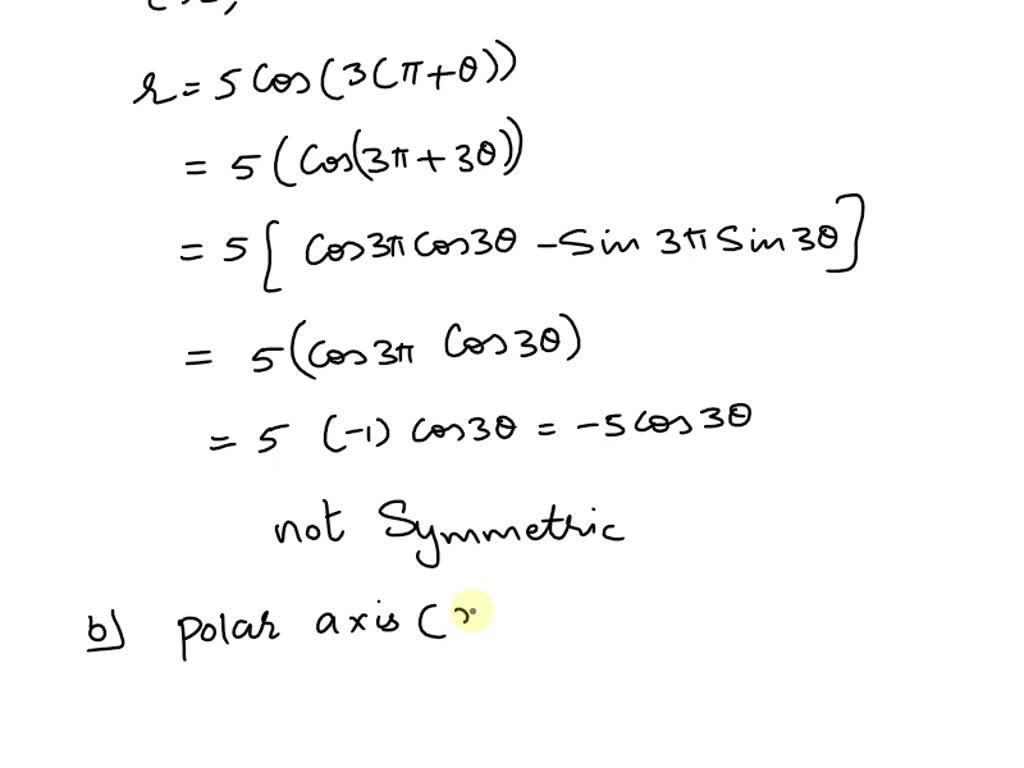 r = 5 Cos(3(π+θ))
= 5 (Cos(3π + 3θ))
= 5 [ Cos3π Cos3θ - Sin 3π Sin 3θ ]
= 5 (Cos3π Cos3θ)
= 5 (-1) Cos3θ = -5 Cos3θ
not Symmetric
b) polar axis (